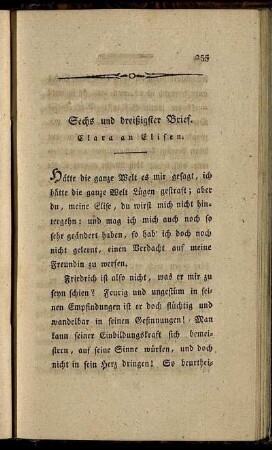 255
Sechs und dreißigster Brief.
Clara an Elisen.
Hätte die ganze Welt es mir gesagt, ich
hätte die ganze Welt Lügen gestraft; aber
du, meine Elise, du wirst mich nicht hin-
tergehn: und mag ich mich auch noch so
sehr geändert haben, so hab' ich doch noch
nicht gelernt, einen Verdacht auf meine
Freundin zu werfen.
Friedrich ist also nicht, was er mir zu
seyn schien! Feurig und ungestüm in sei-
nen Empfindungen ist er doch flüchtig und
wandelbar in seinen Gesinnungen! Man
kann seiner Einbildungskraft sich bemei-
stern, auf seine Sinne würken, und doch
nicht in sein Herz dringen! So beurthei-